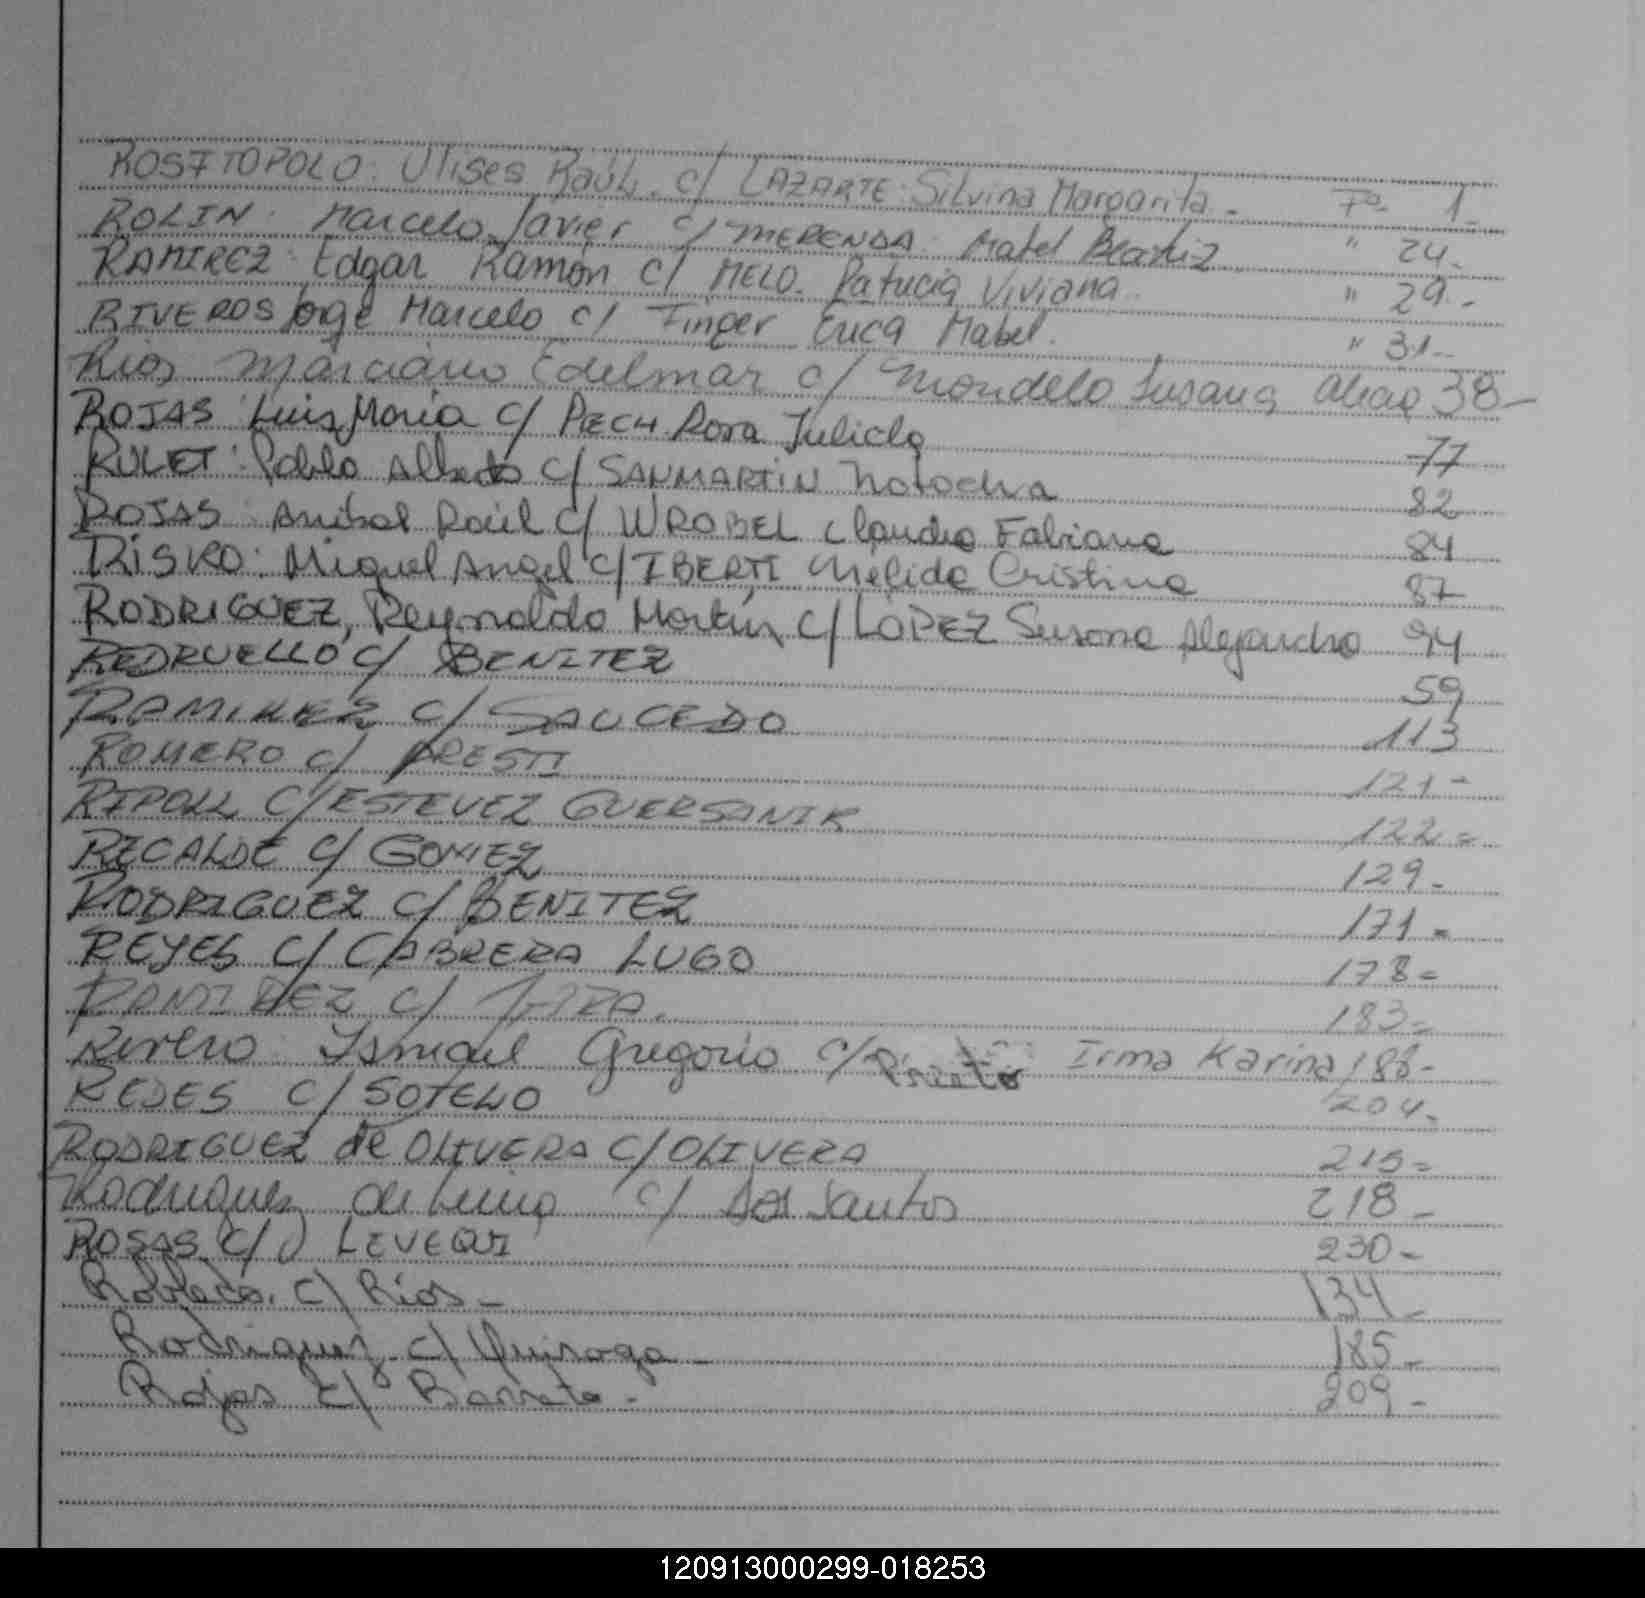 ROSITOPOLO: Ulises Raúl. c/ LAZARTE: Silvina Margarita.- Fº 1.-
ROLIN: Marcelo Javier c/ MERENDA: Mabel Beatriz " 24.-
RAMIREZ: Edgar Ramón c/ MELO. Patricia Viviana. " 29.-
RIVEROS Jorge Marcelo c/ Finger Erica Mabel. " 31.-
Rios Marciano Edelmar c/ Mondelo Susana 38-
ROJAS: Luis Maria c/ PECH Rosa Julicla 77
RULET: Pablo Alberto c/ SANMARTIN Natacha 82
ROJAS: Anibal Raúl c/ WROBEL Claudia Fabiana 84
RISKO: Miguel Angel c/ IBERTI Nelida Cristina 87
RODRIGUEZ, Reynaldo Martín c/ LOPEZ Susana Alejandra 94
REDRUELLO c/ BENITEZ 59
RAMIREZ c/ SAUCEDO 113
ROMERO c/ PRESTI 121-
RIPOLL c/ ESTEVEZ 122-
RECALDE c/ GOMEZ 129-
RODRIGUEZ c/ BENITEZ 171-
REYES c/ CABRERA LUGO 178-
RAMIREZ c/ 183-
Rivero: Ismael Gregorio c/ Prieto Irma Karina 188-
c/ SOTELO 204-
RODRIGUEZ de OLIVERA c/ OLIVERA 215-
Rodriguez de Lima c/ Dos Santos 218-
ROSAS c/ LEVEQUI 230-
Robledo. c/ Rios- 134-
Rodriguez c/ Quiroga- 185-
Rojas c/ Barreto- 209-
120913000299-018253